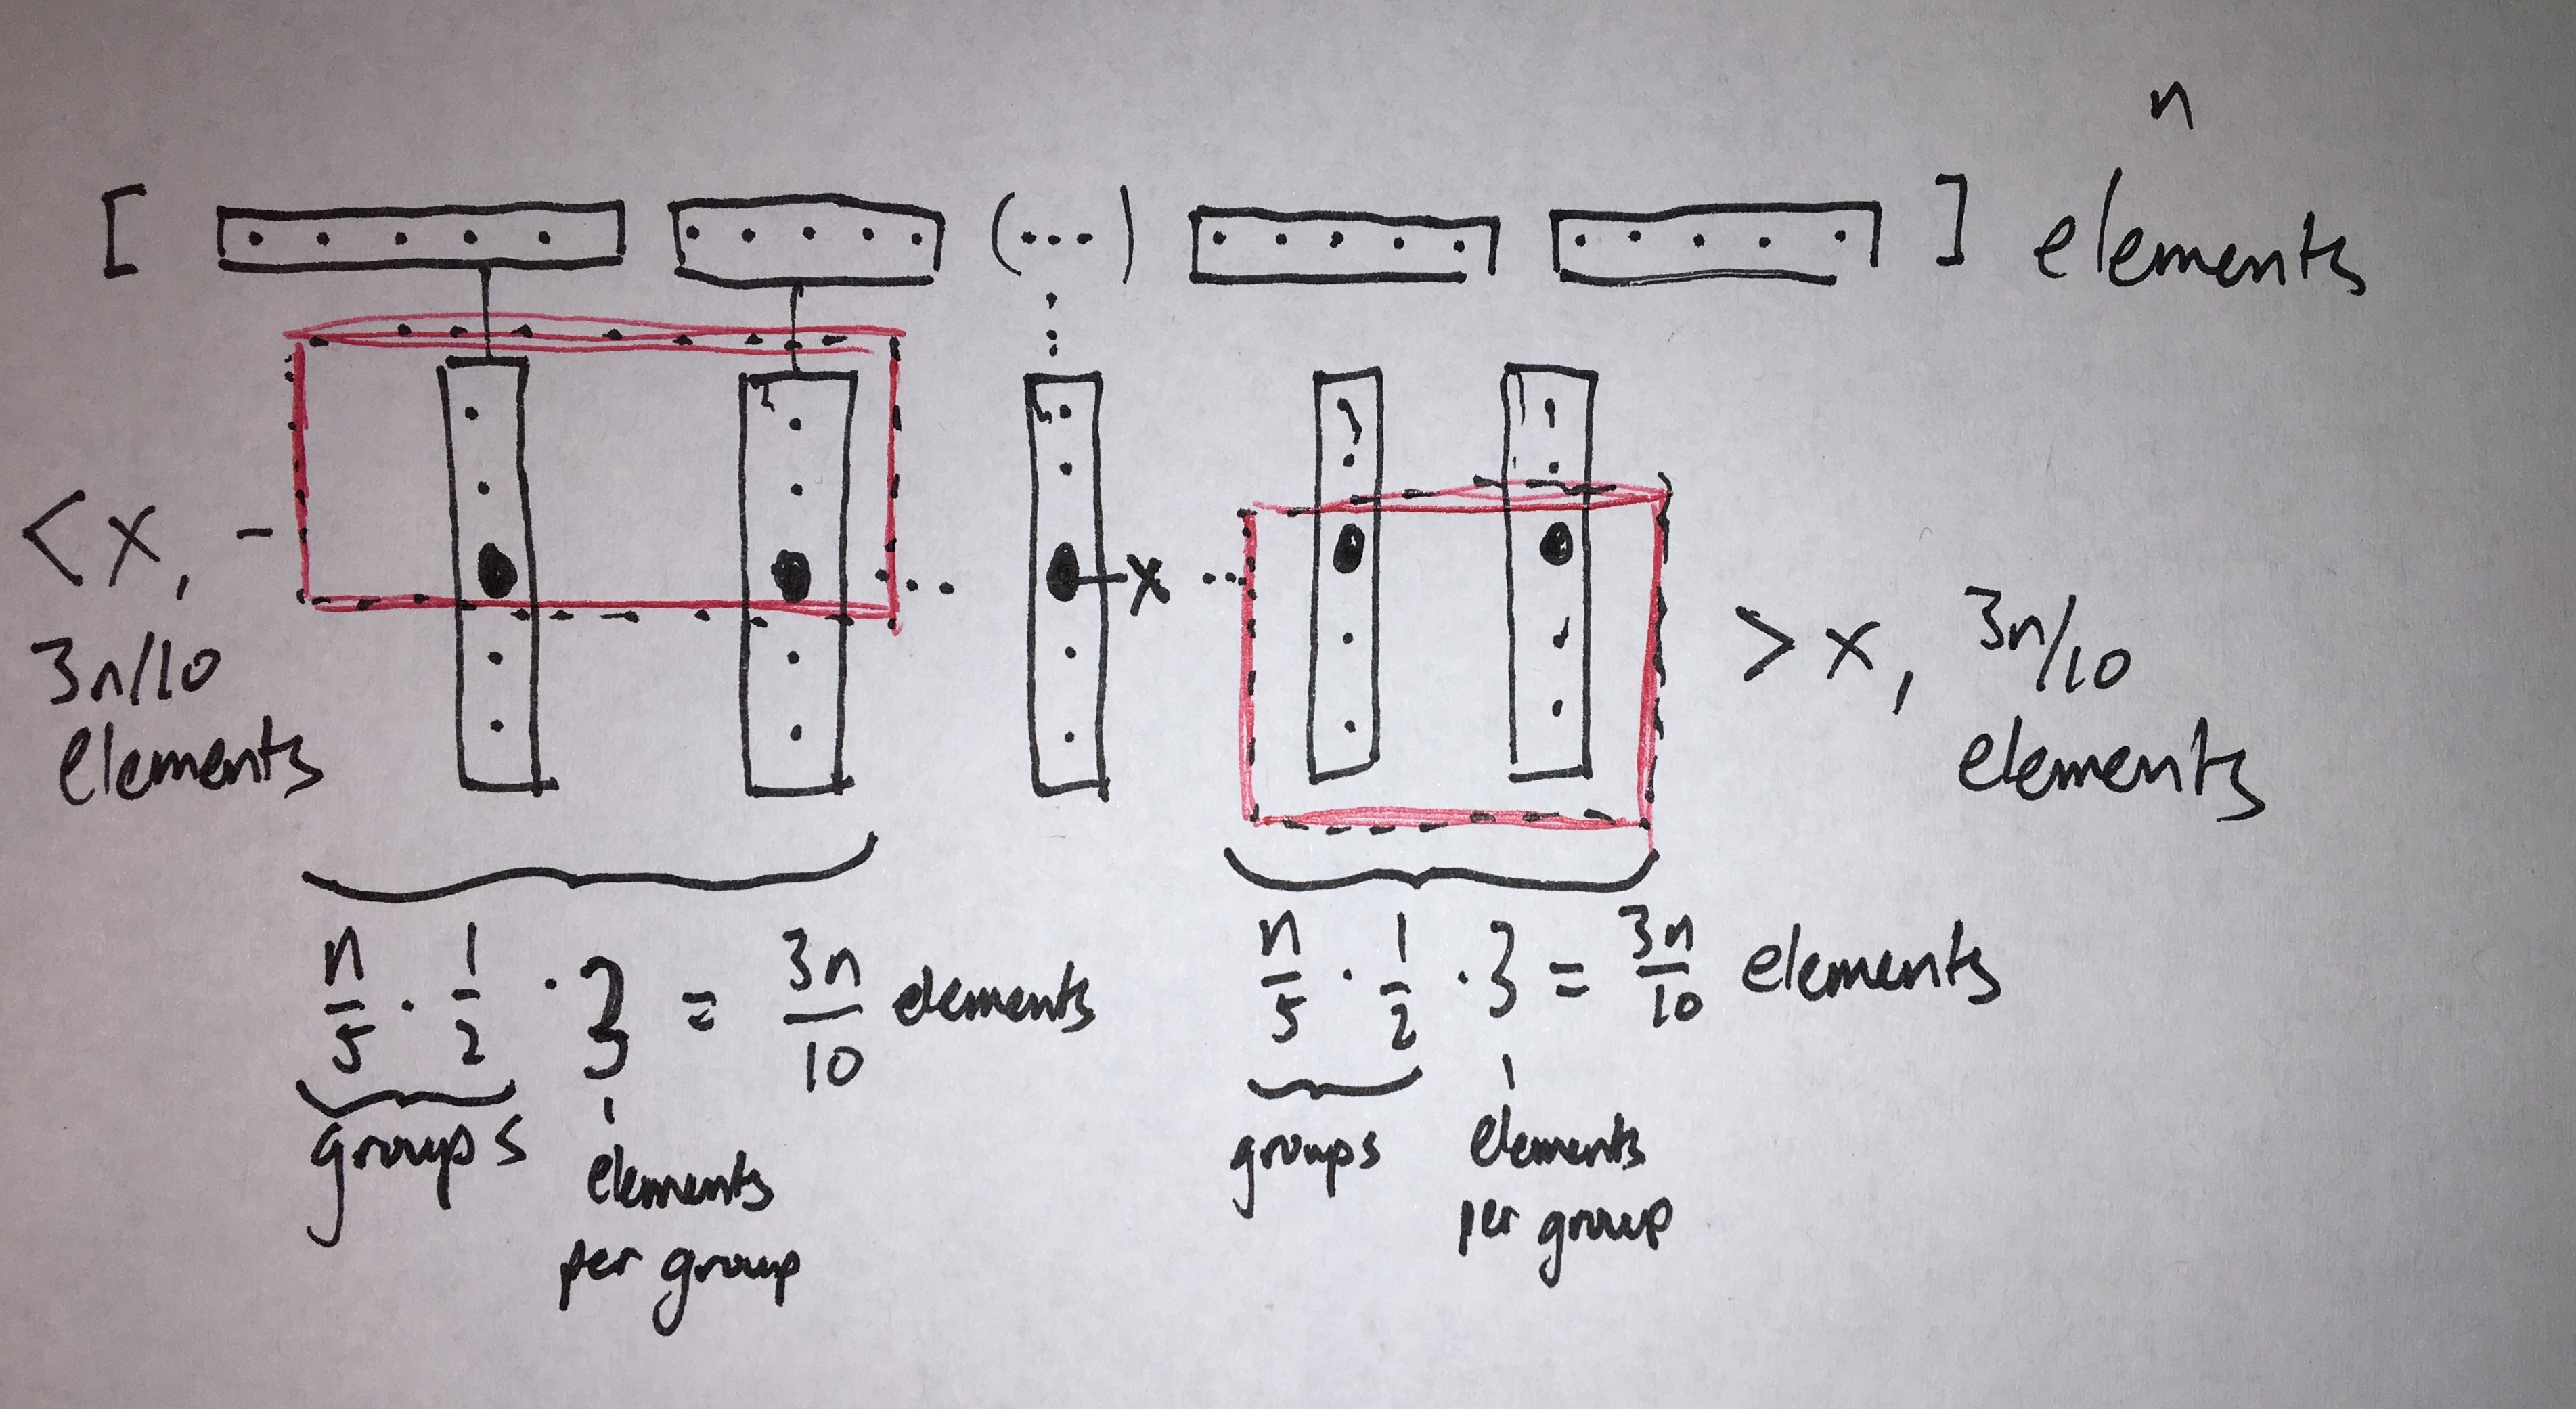 n
[ (...) ] elements
< x, -
3n/10
elements
x
> x, 3n/10
elements
n/5 · 1/2 · 3 = 3n/10 elements
groups
elements
per group
n/5 · 1/2 · 3 = 3n/10 elements
groups
elements
per group